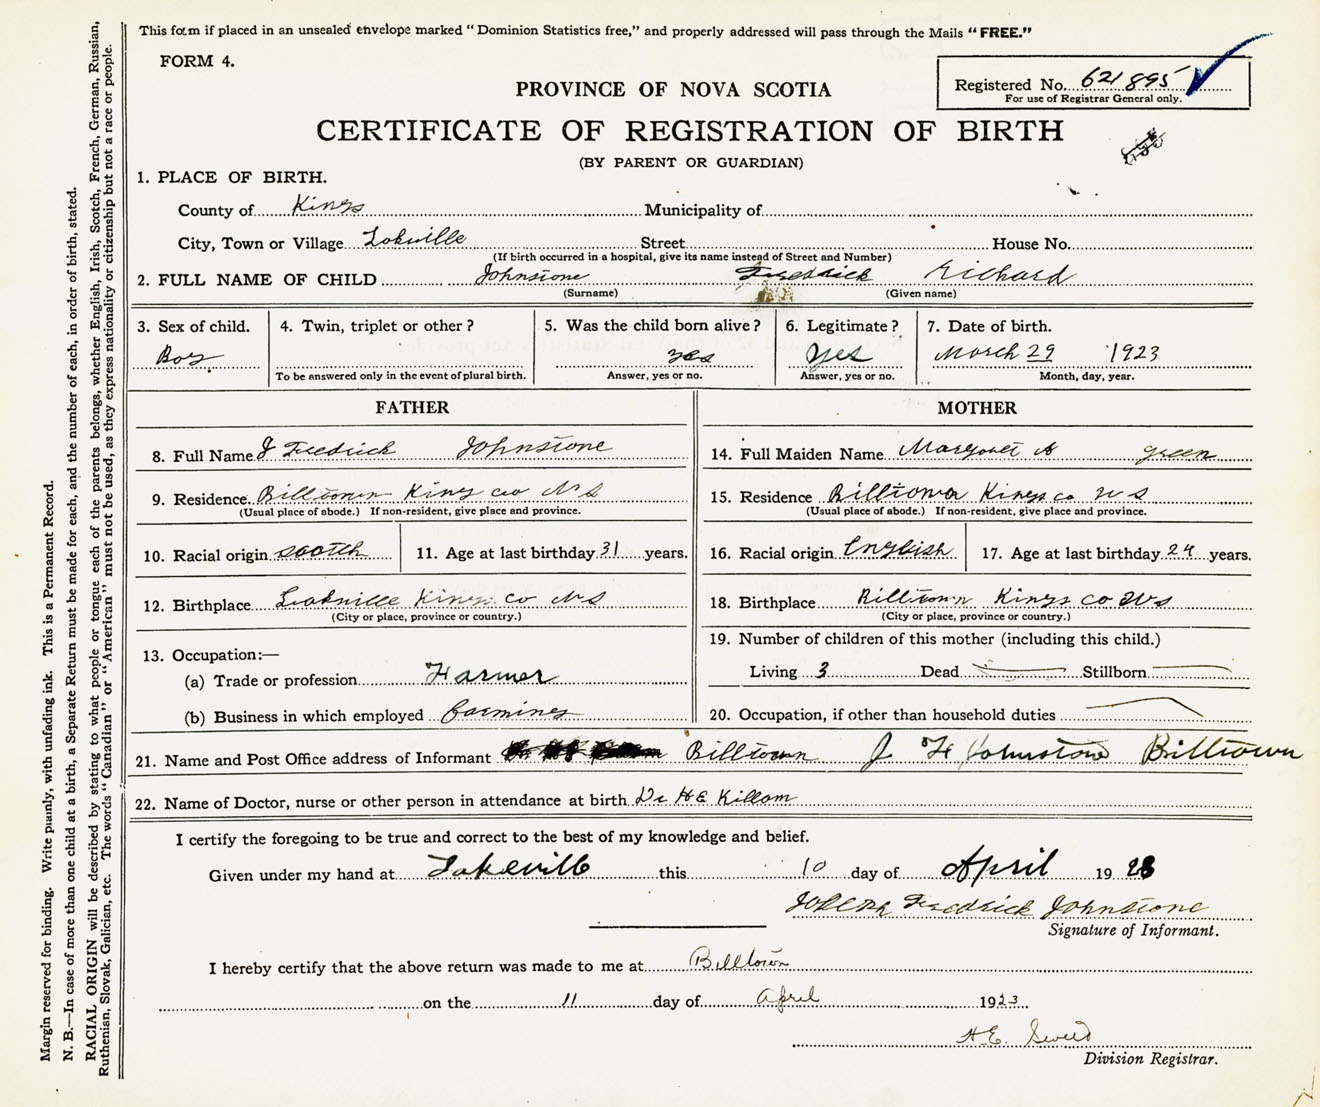 This form if placed in an unsealed envelope marked "Dominion Statistics free," and properly addressed will pass through the Mails "FREE."
FORM 4.
Registered No. 621895
For use of Registrar General only.
PROVINCE OF NOVA SCOTIA
CERTIFICATE OF REGISTRATION OF BIRTH
(BY PARENT OR GUARDIAN)
1. PLACE OF BIRTH.
County of Kings Municipality of
City, Town or Village Lakville Street House No.
(If birth occurred in a hospital, give its name instead of Street and Number)
2. FULL NAME OF CHILD Johnstone Fredrick Richard
(Surname) (Given name)
3. Sex of child. 4. Twin, triplet or other? 5. Was the child born alive? 6. Legitimate? 7. Date of birth.
Boy yes yes March 29 1923
To be answered only in the event of plural birth. Answer, yes or no. Answer, yes or no. Month, day, year.
FATHER
8. Full Name J Fredrick Johnstone
9. Residence Billtown Kings co N S
(Usual place of abode.) If non-resident, give place and province.
10. Racial origin scotch 11. Age at last birthday 31 years.
12. Birthplace Lakville Kings co N S
(City or place, province or country.)
13. Occupation:—
(a) Trade or profession Farmer
(b) Business in which employed farming
MOTHER
14. Full Maiden Name Margaret A green
15. Residence Billtown Kings co N S
(Usual place of abode.) If non-resident, give place and province.
16. Racial origin English 17. Age at last birthday 24 years.
18. Birthplace Billtown Kings co N S
(City or place, province or country.)
19. Number of children of this mother (including this child.)
Living 3 Dead Stillborn
20. Occupation, if other than household duties
21. Name and Post Office address of Informant Billtown J F Johnstone Billtown
22. Name of Doctor, nurse or other person in attendance at birth Dr H E Killam
I certify the foregoing to be true and correct to the best of my knowledge and belief.
Given under my hand at Lakeville this 10 day of April 1923
Joseph Fredrick Johnstone
Signature of Informant.
I hereby certify that the above return was made to me at Billtown
on the 11 day of April 1923
H.E.
Division Registrar.
Margin reserved for binding. Write plainly, with unfading ink. This is a Permanent Record.
N. B.—In case of more than one child at a birth, a Separate Return must be made for each, and the number of each, in order of birth, stated.
RACIAL ORIGIN will be described by stating to what people or tongue each of the parents belongs, whether English, Irish, Scotch, French, German, Russian,
Ruthenian, Slovak, Galician, etc. The words "Canadian" or "American" must not be used, as they express nationality or citizenship but not a race or people.